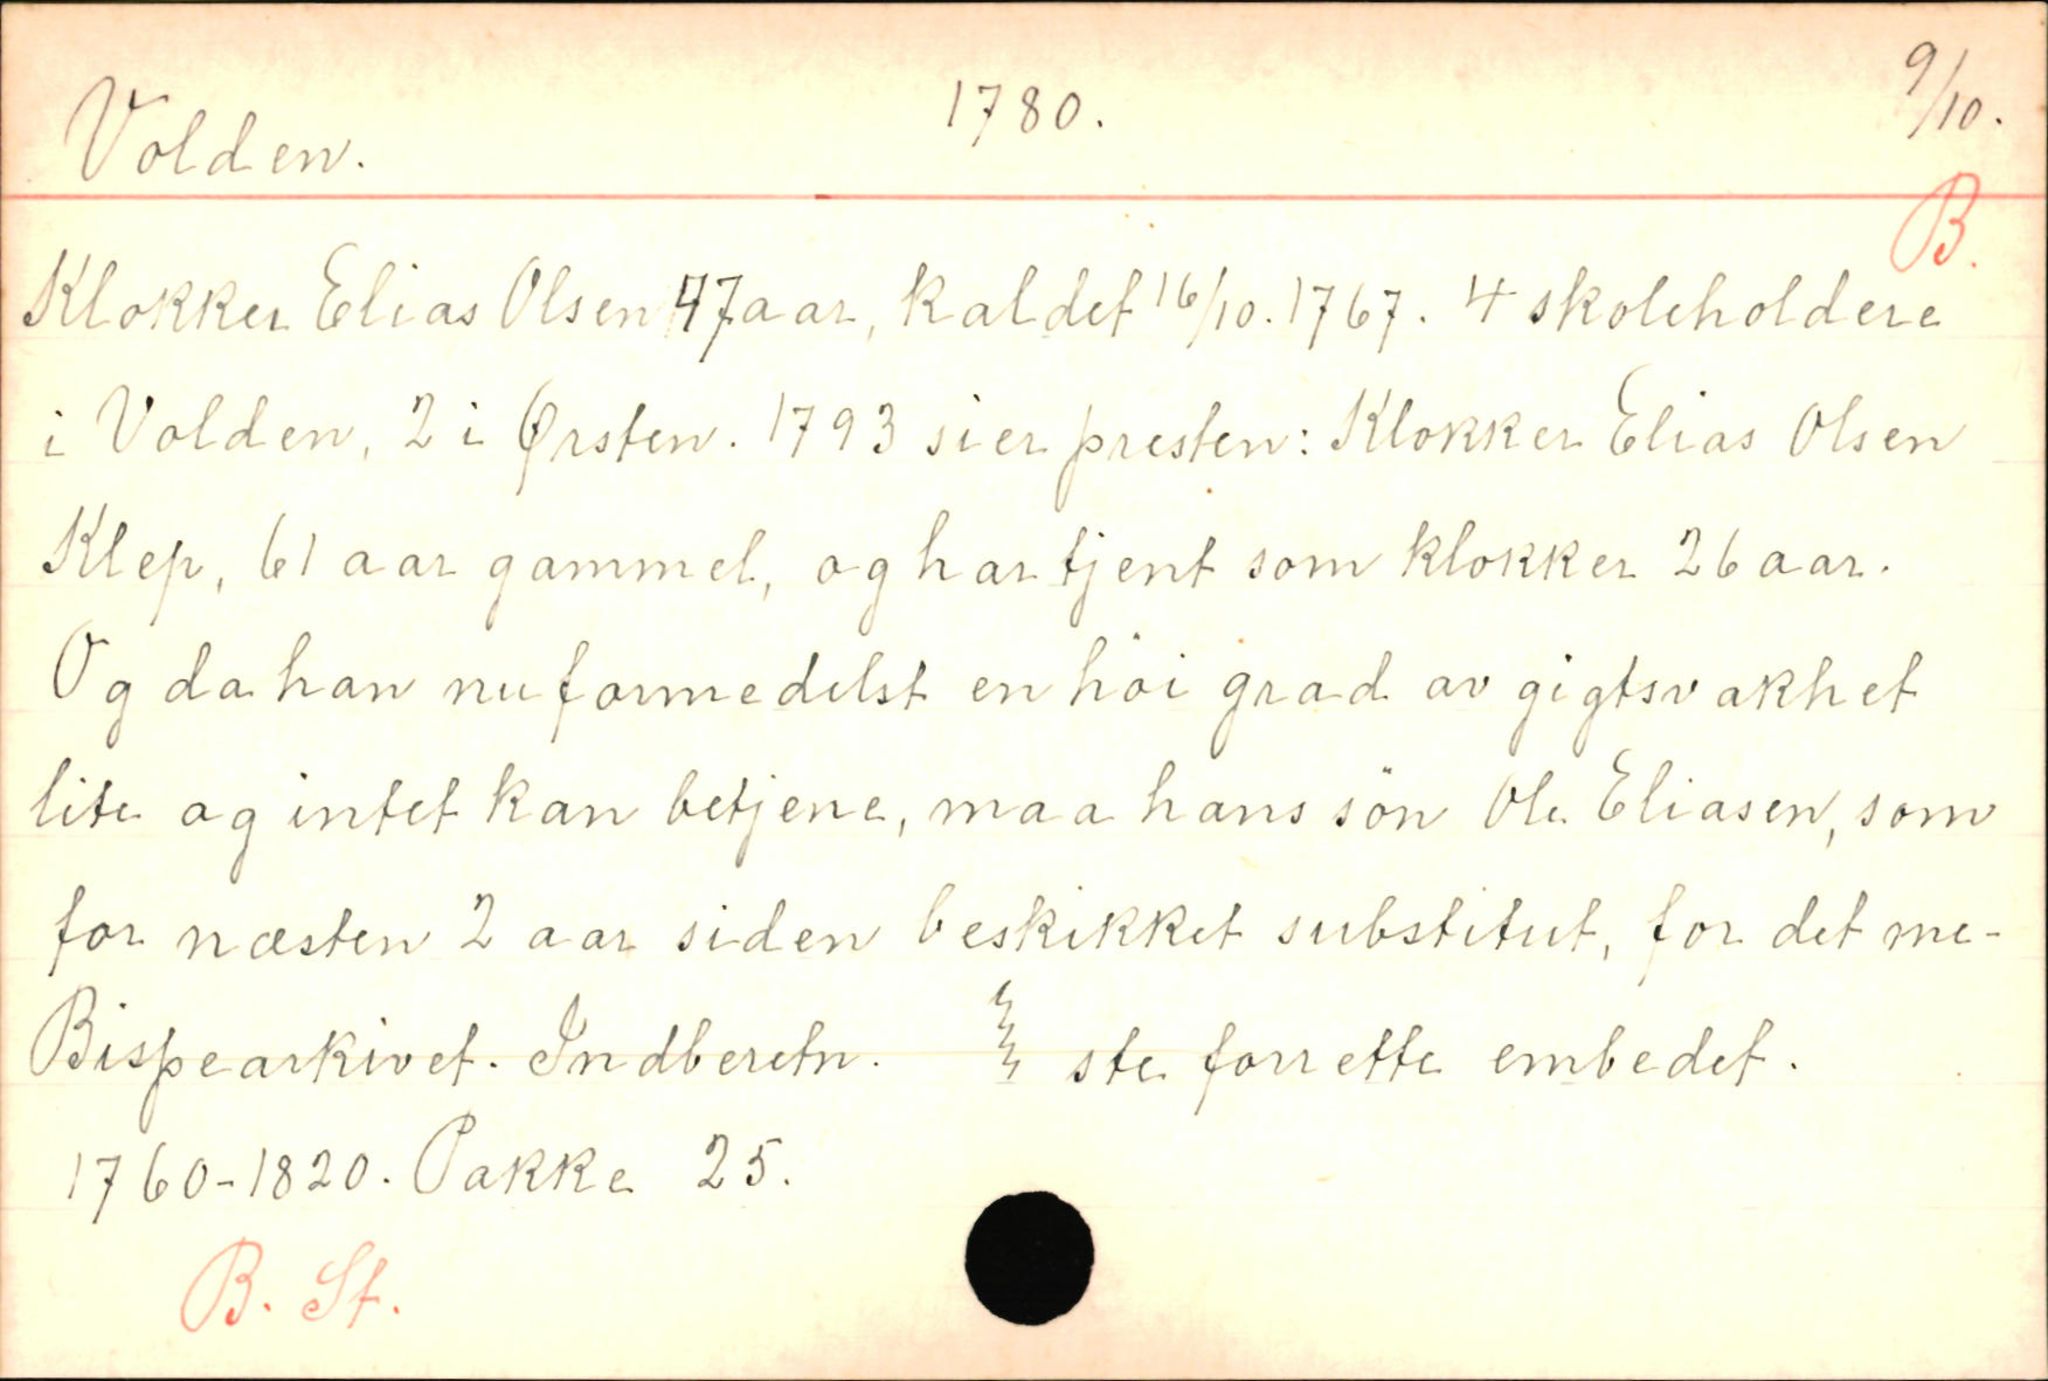 Volden. 1780. 9/10.
B.
Klokker Elias Olsen 47 aar, kaldet 16/10. 1767. 4 skoleholdere
i Volden, 2 i Ørsten. 1793 sier presten: Klokker Elias Olsen
Klep, 61 aar gammel, og har tjent som klokker 26 aar.
Og da han nu formedelst en höi grad av gigtsvakhet
lite og intet kan betjene, maa hans sön Ole Eliasen, som
for næsten 2 aar siden beskikket substitut, for det me-
Bispearkivet. Indberetn. ste forrette embedet.
1760-1820. Pakke 25.
B. St.